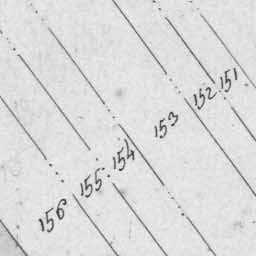 156 155. 154 153 152 151